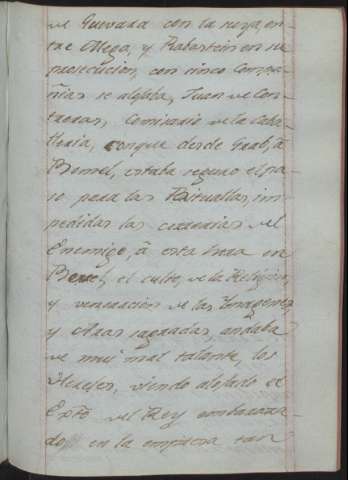 de Guevara con la suya, en-
tre Mega, y Rabastein en su
prosecucion, con cinco Compa-
ñias se alojaba, Juan de Con-
treras, Comisario de la Caba-
lleria, conque desde Grab, à
Bomel, estaba seguro el pa-
so para las Vituallas, im-
pedidas las correrias del
Enemigo, à esta hora en
el culto, de la Religion,
y veneracion de las Imagenes,
y Aras sagradas, andaba
de mui mal talante, los
Herejes, viendo alojado el
Exto del Rey embaraza-
do en la empresa tan